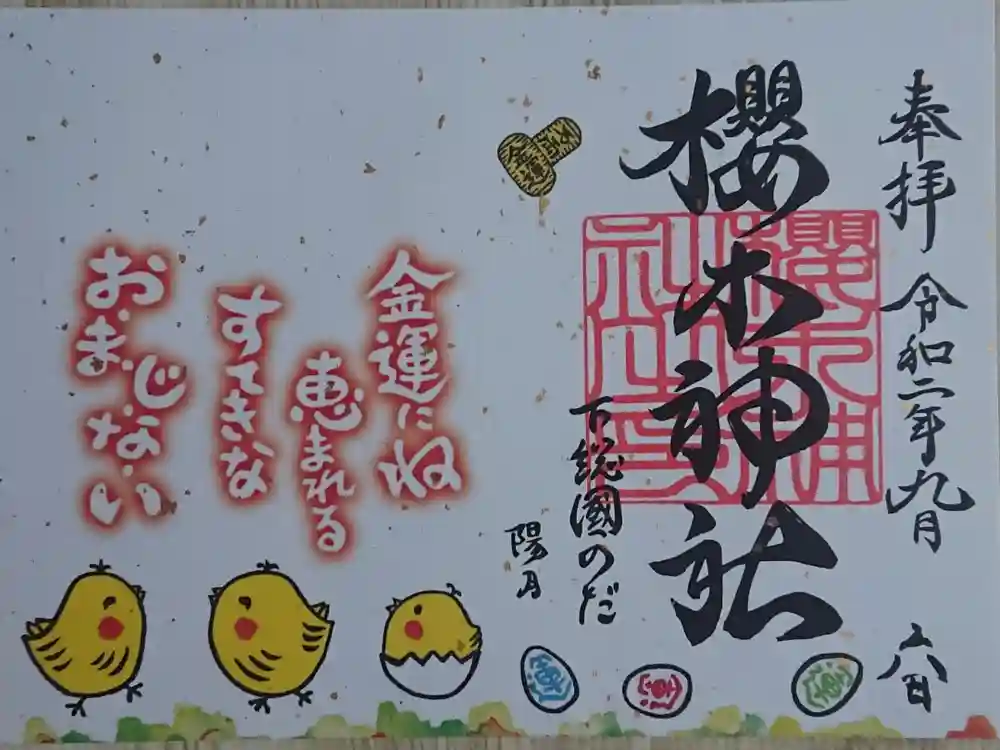 奉拝
令和二年九月六日
櫻木神社
下総國のだ
陽月
金運にね
恵まれる
すてきな
おまじない